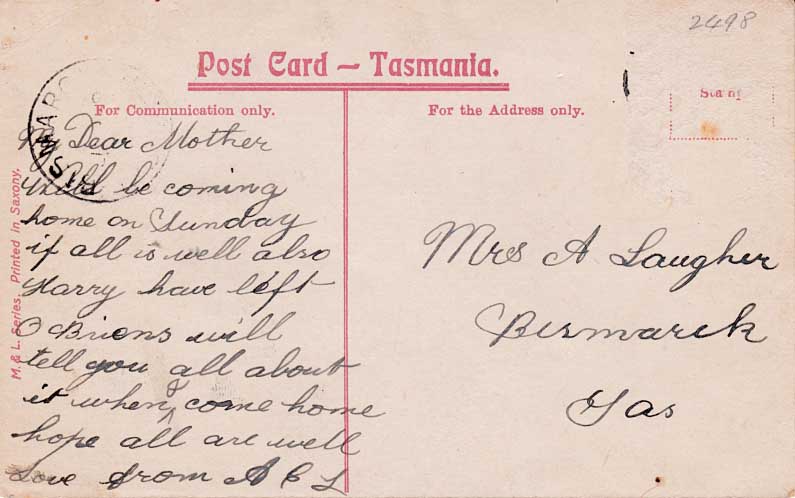 2498
Post Card – Tasmania.
For Communication only.
For the Address only.
My Dear Mother
Will be coming
home on Sunday
if all is well also
Harry have left
O Briens will
tell you all about
it when I come home
hope all are well
Love from A E L
Mrs A Laugher
Bismarck
Tas
M. & L. Series. Printed in Saxony.